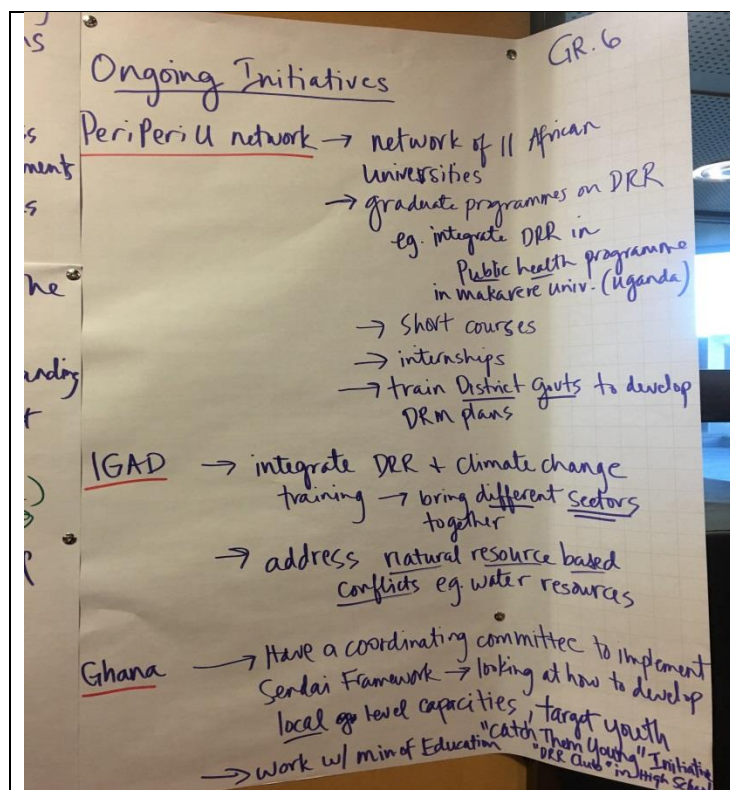 GR.6
Ongoing Initiatives
PeriPeri U network → network of 11 African
Universities
→ graduate programmes on DRR
eg. integrate DRR in
Public health programme
in makarere univ. (Uganda)
→ Short courses
→ internships
→ train District Govts to develop
DRM plans
IGAD → integrate DRR + Climate change
training → bring different sectors
together
→ address natural resource based
conflicts eg. water resources
Ghana → Have a coordinating committee to implement
Sendai Framework → looking at how to develop
local level capacities, target youth
"Catch Them Young" Initiative
→ work w/ min of Education "DRR Club" in High School
ments
he
anding